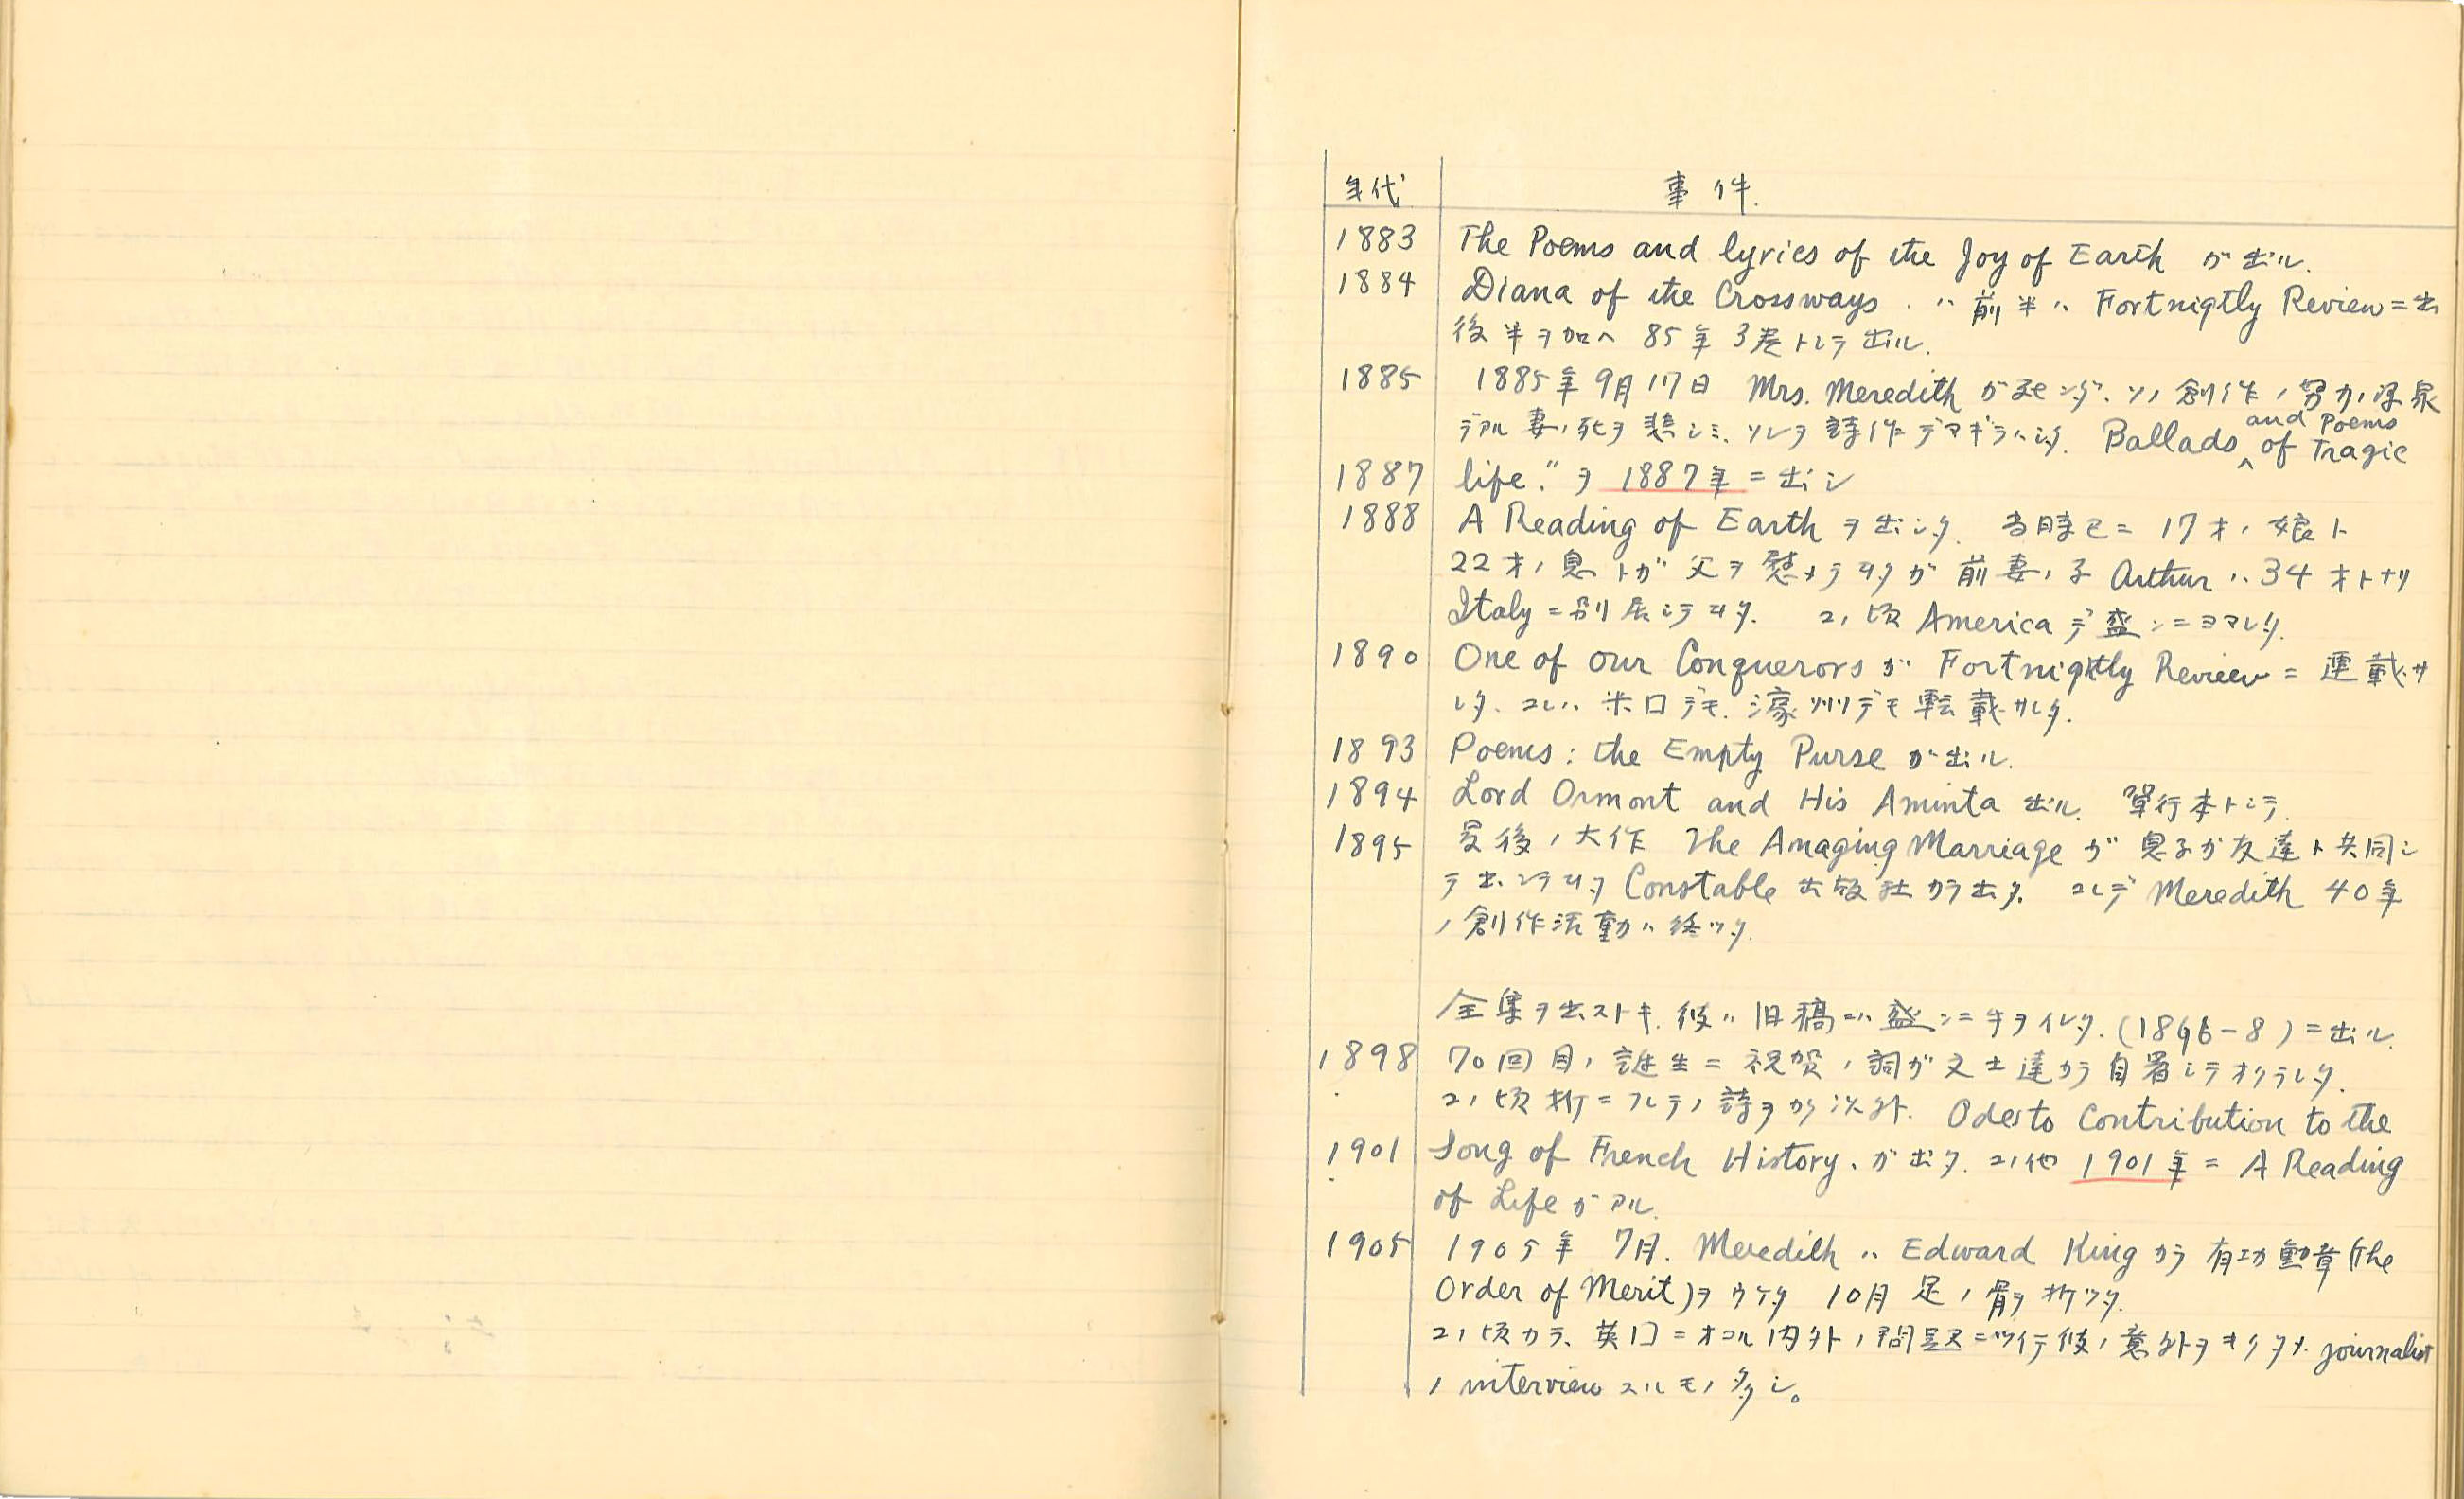 年代 事件.
1883 The Poems and lyrics of the Joy of Earth ガ出ル.
1884 Diana of the Crossways. ハ前半ハ Fortnigtly Review ニ出
後半ヲ加ヘ 85年 3巻トシテ出ル.
1885 1885年9月17日 Mrs. Meredith ガ死ンダ、ソノ創作ノ努力ノ源泉
デアル妻ノ死ヲ悲シミ、ソレヲ詩作デマギラハシタ. Ballads and Poems of Tragic
1887 life." ヲ 1887年ニ出シ
1888 A Reading of Earth ヲ出シタ. 当時已ニ 17才ノ娘ト
22才ノ息トガ父ヲ慰メテヰタガ前妻ノ子 Arthur ハ 34才トナリ
Italy ニ別居シテヰタ. コノ頃 America デ盛ンニヨマレタ.
1890 One of our Conquerors ガ Fortnigtly Review ニ連載サ
レタ、コレハ米口デモ、濠州デモ転載サレタ.
1893 Poems: the Empty Purse ガ出ル.
1894 Lord Ormont and His Aminta 出ル. 單行本トシテ.
1895 最後ノ大作 The Amaging Marriage ガ息子ガ友達ト共同シ
テ出シテヰタ Constable 出版社カラ出タ. コレデ Meredith 40年
ノ創作活動ハ終ツタ.
全集ヲ出ストキ、彼ハ旧稿ニハ盛ンニ手ヲイレタ. (1896-8)ニ出ル.
1898 70回目ノ誕生ニ祝賀ノ詞ガ文士達カラ自署シテオクラレタ.
コノ頃折ニフレテノ詩ヲカク以外. Odes to Contribution to the
1901 Song of French History. ガ出タ. コノ他 1901年ニ A Reading
of Life ガアル.
1905 1905年 7月. Meredith ハ Edward King カラ有功勳章 (the
Order of Merit) ヲウケタ 10月足ノ骨ヲ折ツタ.
コノ頃カラ、英口ニオコル内外ノ問題ニツイテ彼ノ意外ヲキクタメ journalist
ノ interview スルモノ多シ。